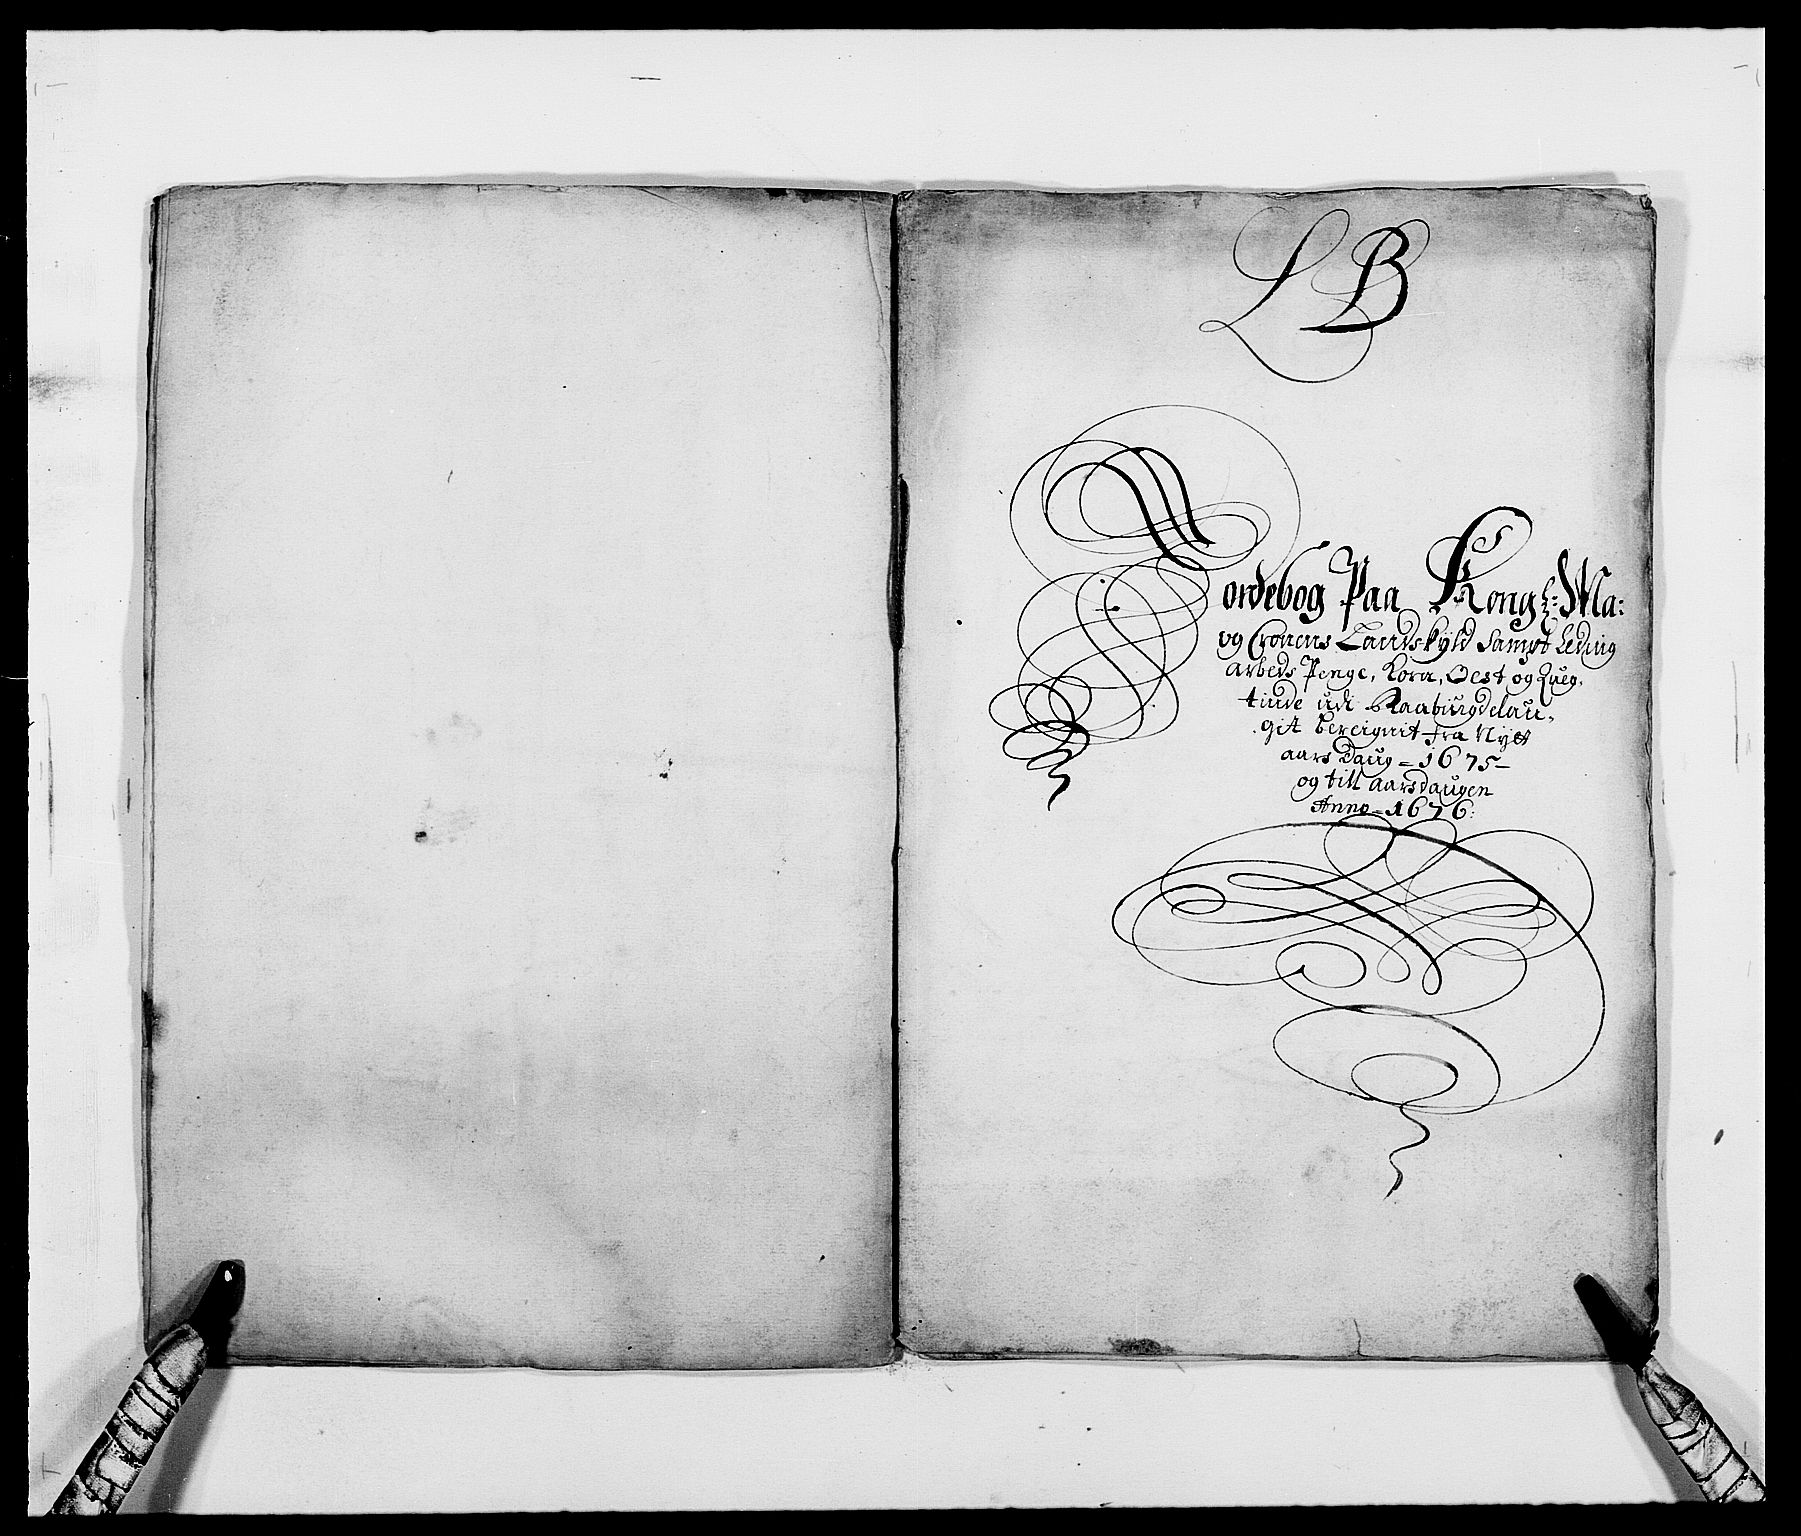 LB
Jordebog Paa Kongl: Ma:
og Cronens Landskÿld sampt Leding
arbeds Penge, Korn, Oest og Queg,
tinde udi Raabÿugdelau,
git bereignit fra Nÿtt
aars Daug = 1675 =
og till aarsdaugen
Anno = 1676: